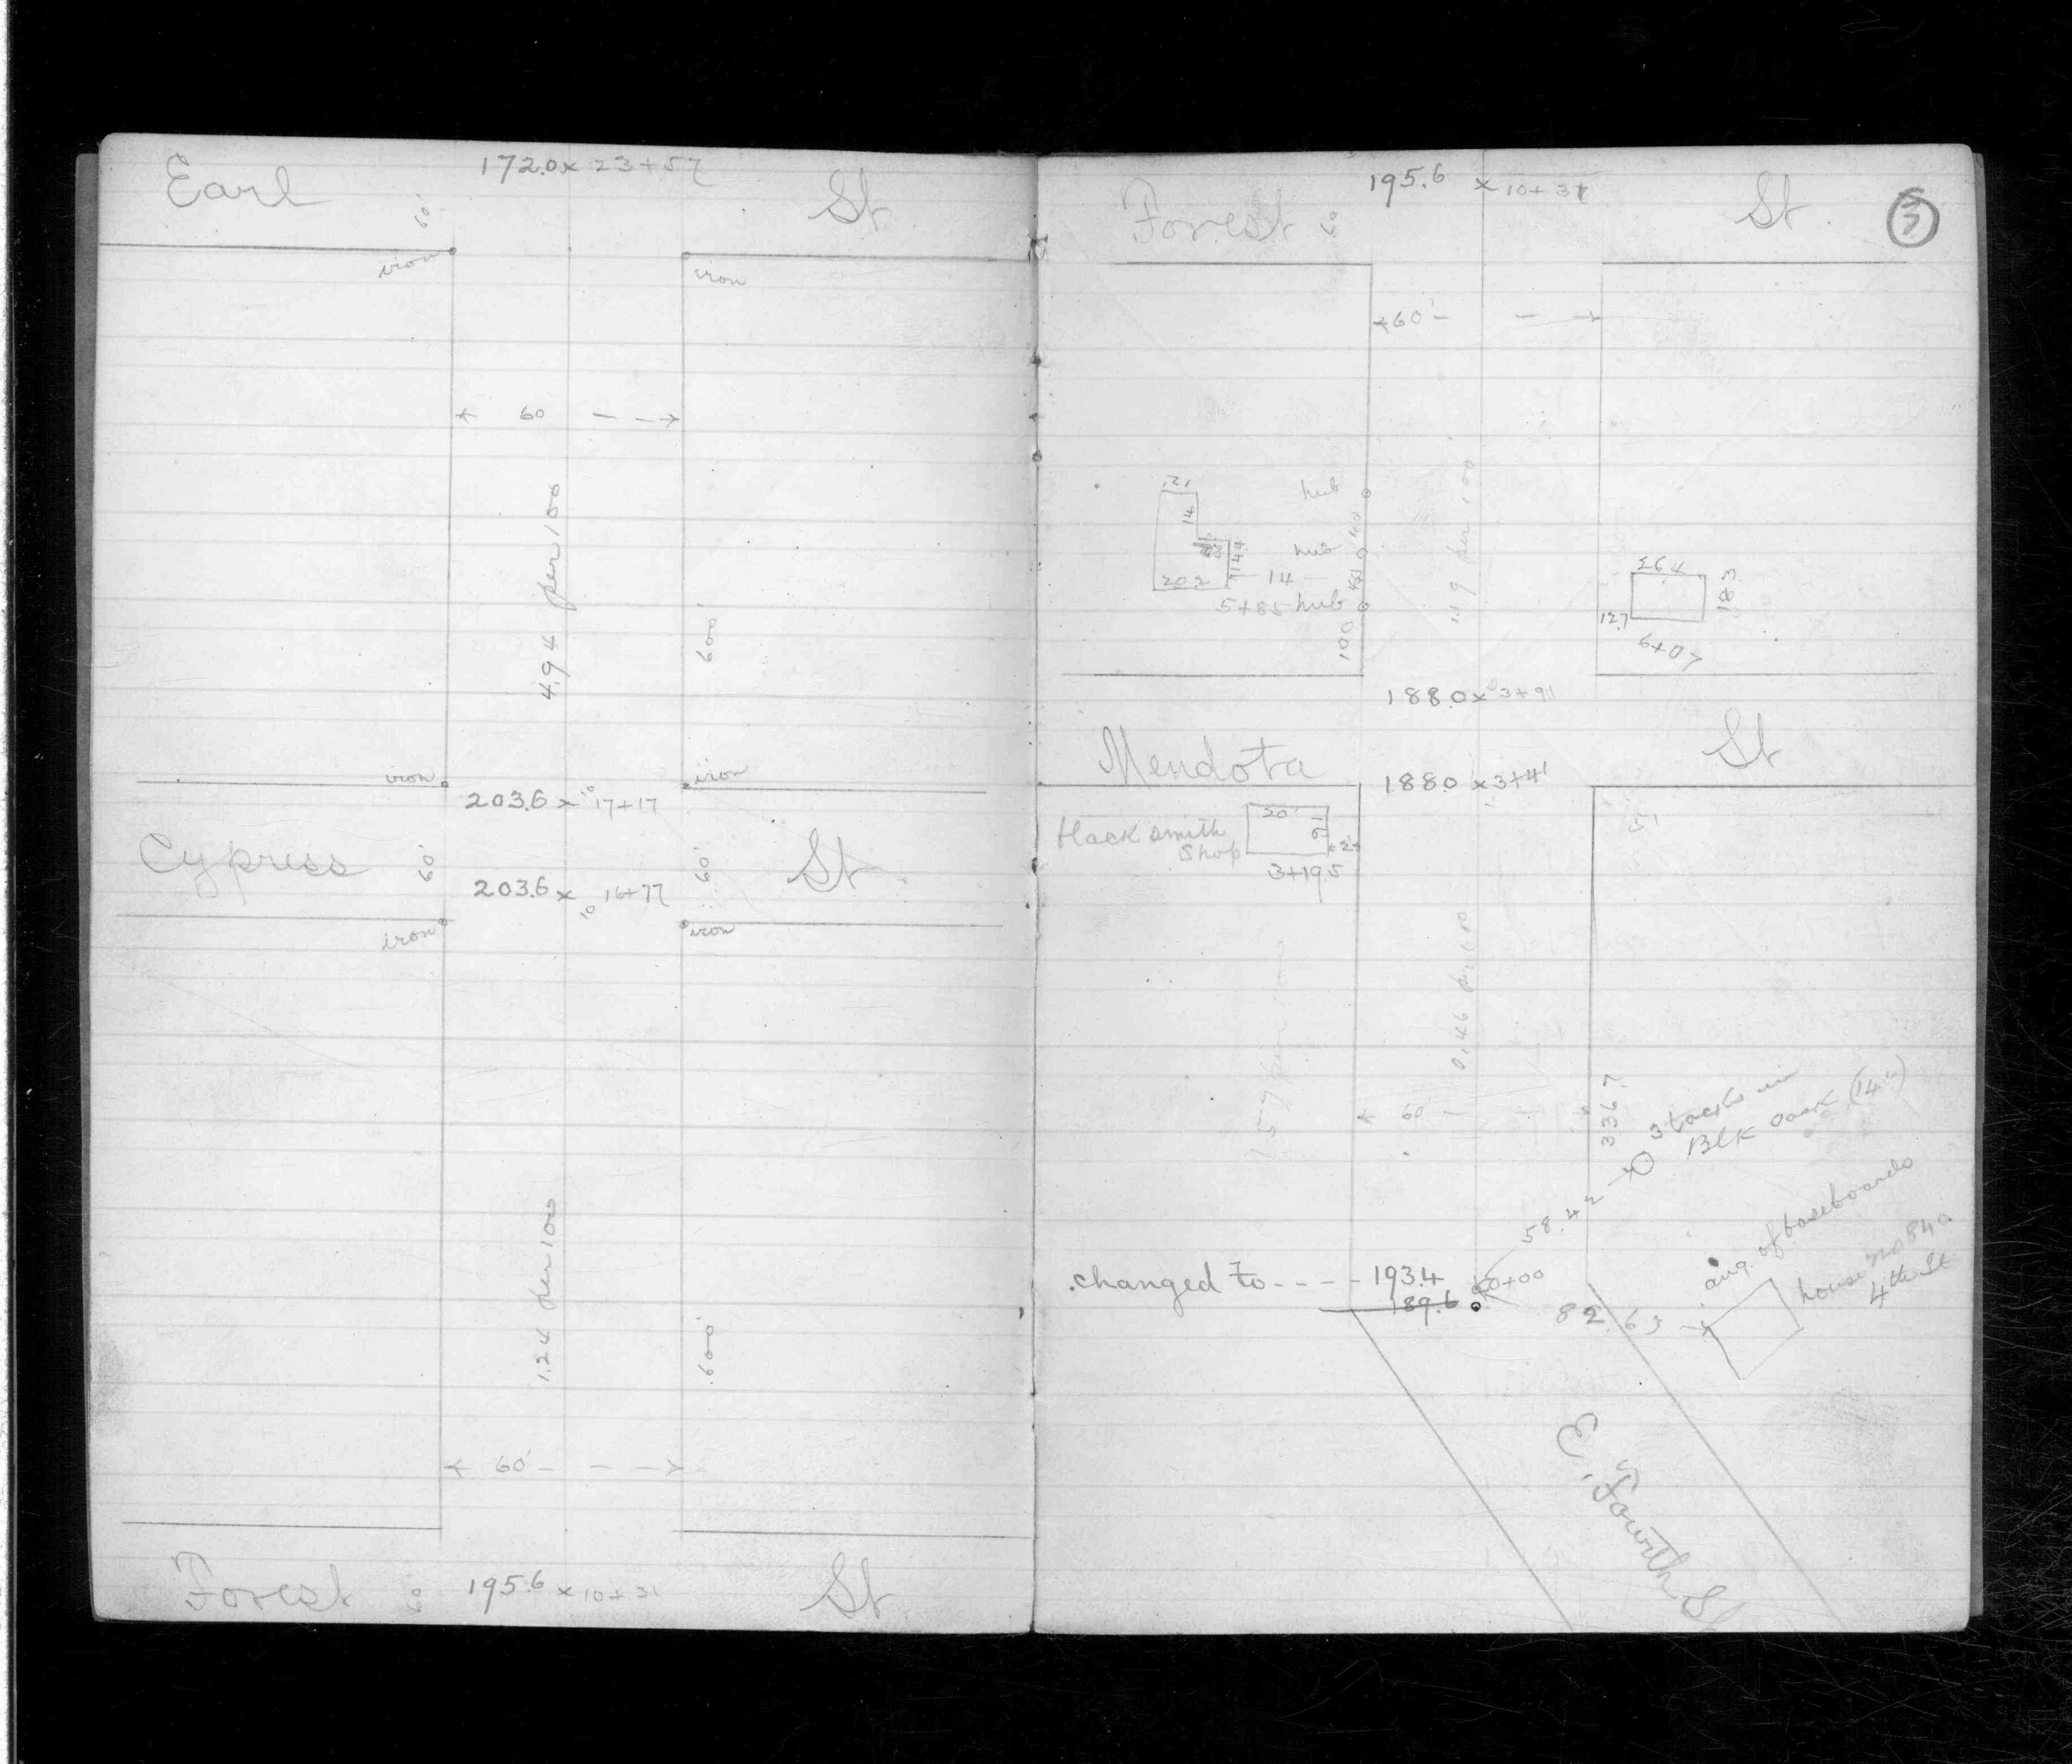 Earl 60' 172.0 x 23+57 St
iron
iron
60
4.94 per 100
600'
iron
iron
203.6 x 17+17
Cypress 60' 60' St
203.6 x 16+77
iron
iron
1.24 per 100
600'
60'
Forest 60 195.6 x 10+31 St
195.6 x 10+31
Forest 60 St. 3
60'
hub
14
1.19 per 100
hub
144
20.2
14
5+85 hub
100
26.4
18.3
12.7
6+07
188.0 x 3+91
Mendota St
188.0 x 3+41
20
Blacksmith
Shop
3+19.5
51
0.46 per 100
60
336.7
3 tacks in
Blk oack (14")
58.42
ang. of baseboards
house no 840
4th St
changed to - - - - 193.4 0+00
189.6
82.63
E. Fourth St